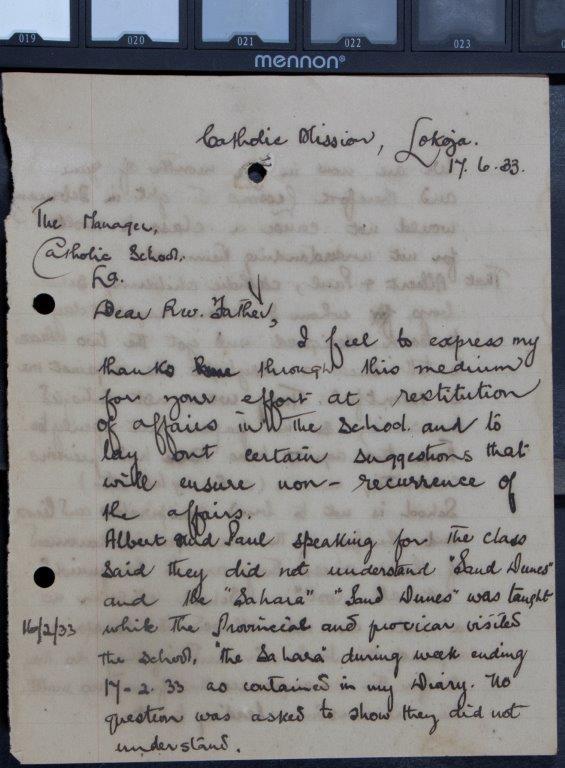 019
020
021
022
023
mennon®
Catholic Mission, Lokoja.
17.6.33.
The Manager,
Catholic School,
Lo.
Dear Rev. Father,
I feel to express my
thanks through this medium
for your effort at restitution
of affairs in the School and to
lay out certain suggestions that
will ensure non-recurrence of
the affairs.
Albert and Paul speaking for the class
said they did not understand "Sand Dunes"
and the "Sahara" "Sand Dunes" was taught
16/2/33 while the Provincial and provicar visited
the School, "the Sahara" during week ending
17-2-33 as contained in my Diary. No
question was asked to show they did not
understand.